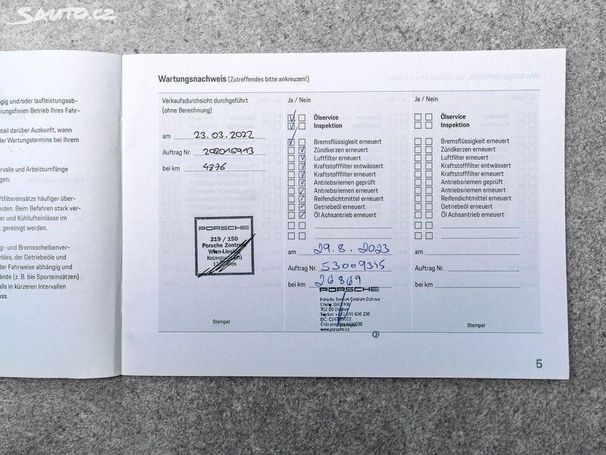 SAUTO.CZ
gig und/oder laufleistungsab-
rungsfreien Betrieb Ihres Fahr-
etail darüber Auskunft, wann
der Wartungstermine bei Ihrem
rvalle und Arbeitsumfänge
gen.
ntervalleinsätze häufiger über-
werden. Beim Befahren stark ver-
er und Kühllufteinlässe im
gereinigt werden.
g- und Bremsscheibenver-
röles, der Getriebeöl und
der Fahrweise abhängig und
ände (z. B. bei Sporteinsätzen)
alls in kürzeren Intervallen
uss.
Wartungsnachweis (Zutreffendes bitte ankreuzen!)
Verkaufsdurchsicht durchgeführt
(ohne Berechnung)
am 23.03.2022
Auftrag Nr.
bei km 4876
PORSCHE
219 / 150
Porsche Zentrum
Wien-Liesing
Stempel
Ja / Nein
Ölservice
Inspektion
Bremsflüssigkeit erneuert
Zündkerzen erneuert
Luftfilter erneuert
Kraftstofffilter entwässert
Kraftstofffilter erneuert
Antriebsriemen geprüft
Antriebsriemen erneuert
Reifendichtmittel erneuert
Getriebeöl erneuert
Öl Achsantrieb erneuert
am 29.8.2023
Auftrag Nr. 53009345
bei km 26869
PORSCHE
Porsche Service Centrum Ostrava
www.porsche.cz
Stempel
Ja / Nein
Ölservice
Inspektion
Bremsflüssigkeit erneuert
Zündkerzen erneuert
Luftfilter erneuert
Kraftstofffilter entwässert
Kraftstofffilter erneuert
Antriebsriemen geprüft
Antriebsriemen erneuert
Reifendichtmittel erneuert
Getriebeöl erneuert
Öl Achsantrieb erneuert
am
Auftrag Nr.
bei km
Stempel
5